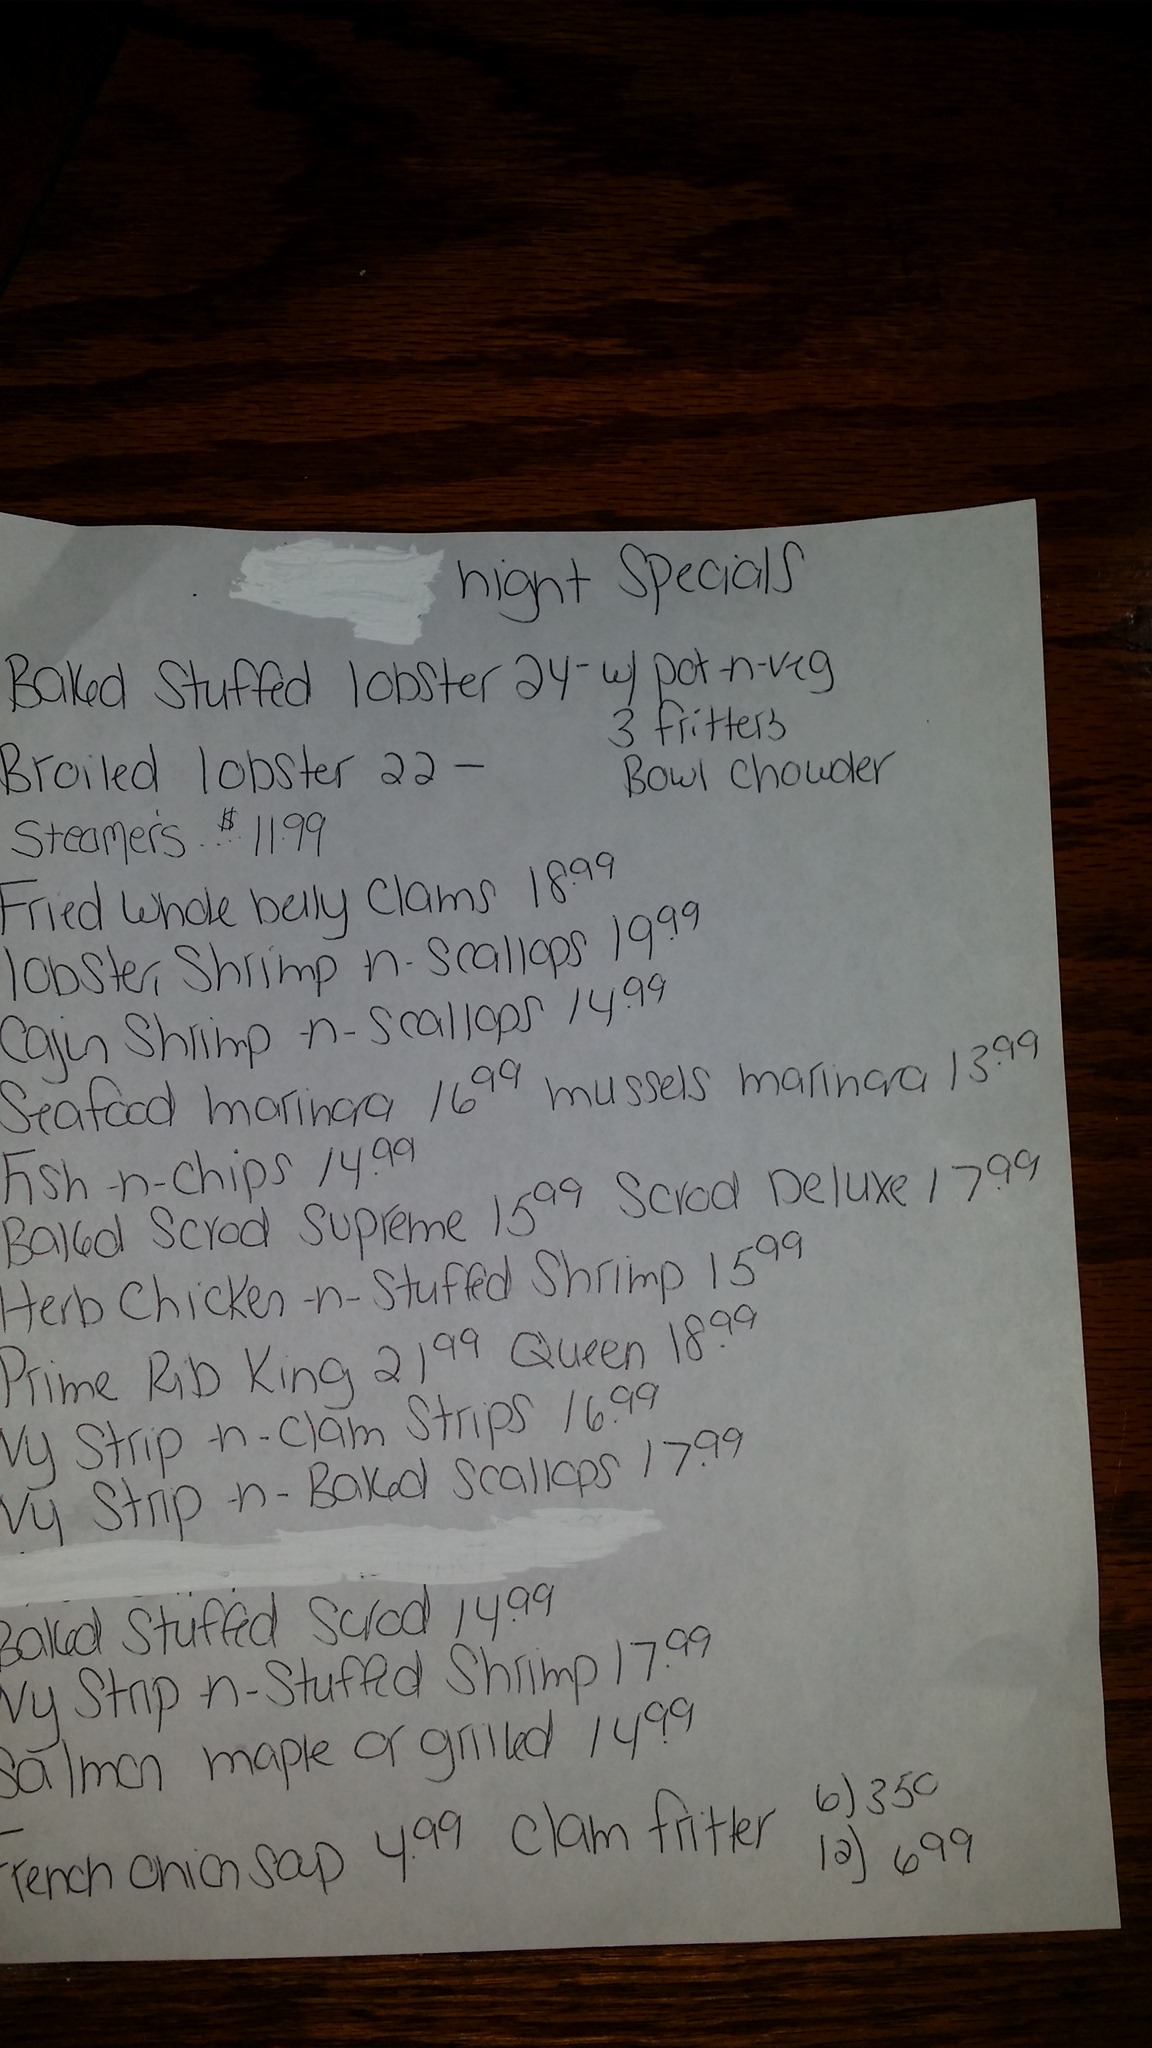 night Specials
Baked Stuffed lobster 24- w/ pot-n-veg
3 fritters
Broiled lobster 22 -
Bowl Chowder
Steamers $11.99
Fried whole belly Clams 18.99
lobster, Shrimp n-Scallops 19.99
Cajin Shrimp -n-Scallops 14.99
Seafood marinara 16.99 mussels marinara 13.99
Fish-n-chips 14.99
Baked Scrod Supreme 15.99 Scrod Deluxe 17.99
Herb Chicken-n-Stuffed Shrimp 15.99
Prime Rib King 21.99 Queen 18.99
Ny Strip -n-Clam Strips 16.99
Ny Strip -n-Baked Scallops 17.99
Baked Stuffed Scrod 14.99
Ny Strip -n-Stuffed Shrimp 17.99
Salmon maple or grilled 14.99
French Onion Soup 4.99 Clam fritter 6) 350
12) 699